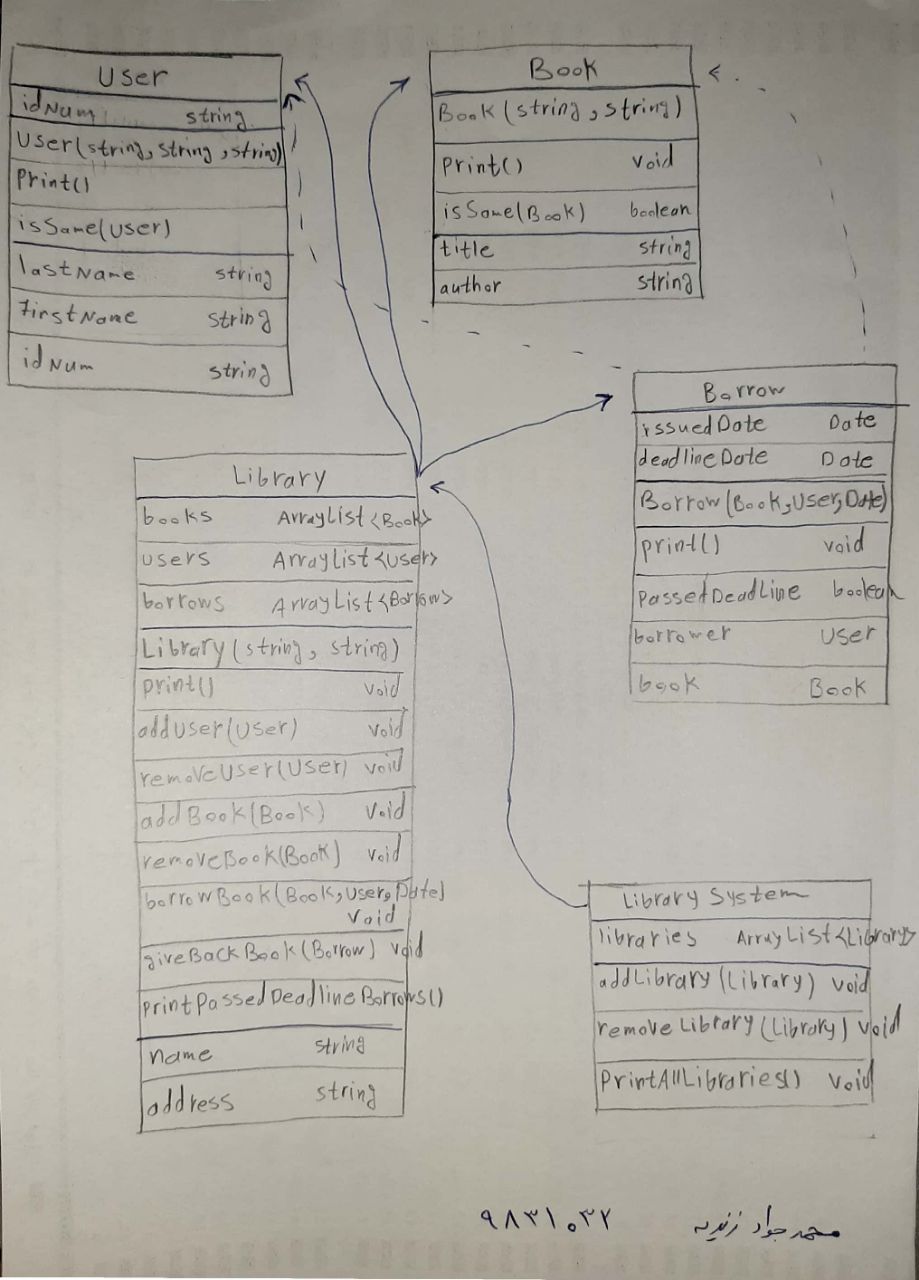 User
idNum string
User(string, string, string)
Print()
isSame(User)
lastName string
FirstName string
idNum string
Book
Book(string, string)
Print() void
isSame(Book) boolean
title string
author string
Borrow
issuedDate Date
deadlineDate Date
Borrow(Book,User,Date)
print() void
PassedDeadLine boolean
borrower User
book Book
Library
books ArrayList<Book>
users ArrayList<User>
borrows ArrayList<Borrow>
Library(string, string)
print() void
addUser(User) void
removeUser(User) void
addBook(Book) void
removeBook(Book) void
borrowBook(Book,User,Date)
void
giveBackBook(Borrow) void
printPassedDeadlineBorrows()
name string
address string
Library System
libraries ArrayList<Library>
addLibrary(Library) void
remove Library(Library) void
PrintAllLibraries() void
محمد جواد زندیه ۹۸۳۱۰۳۲